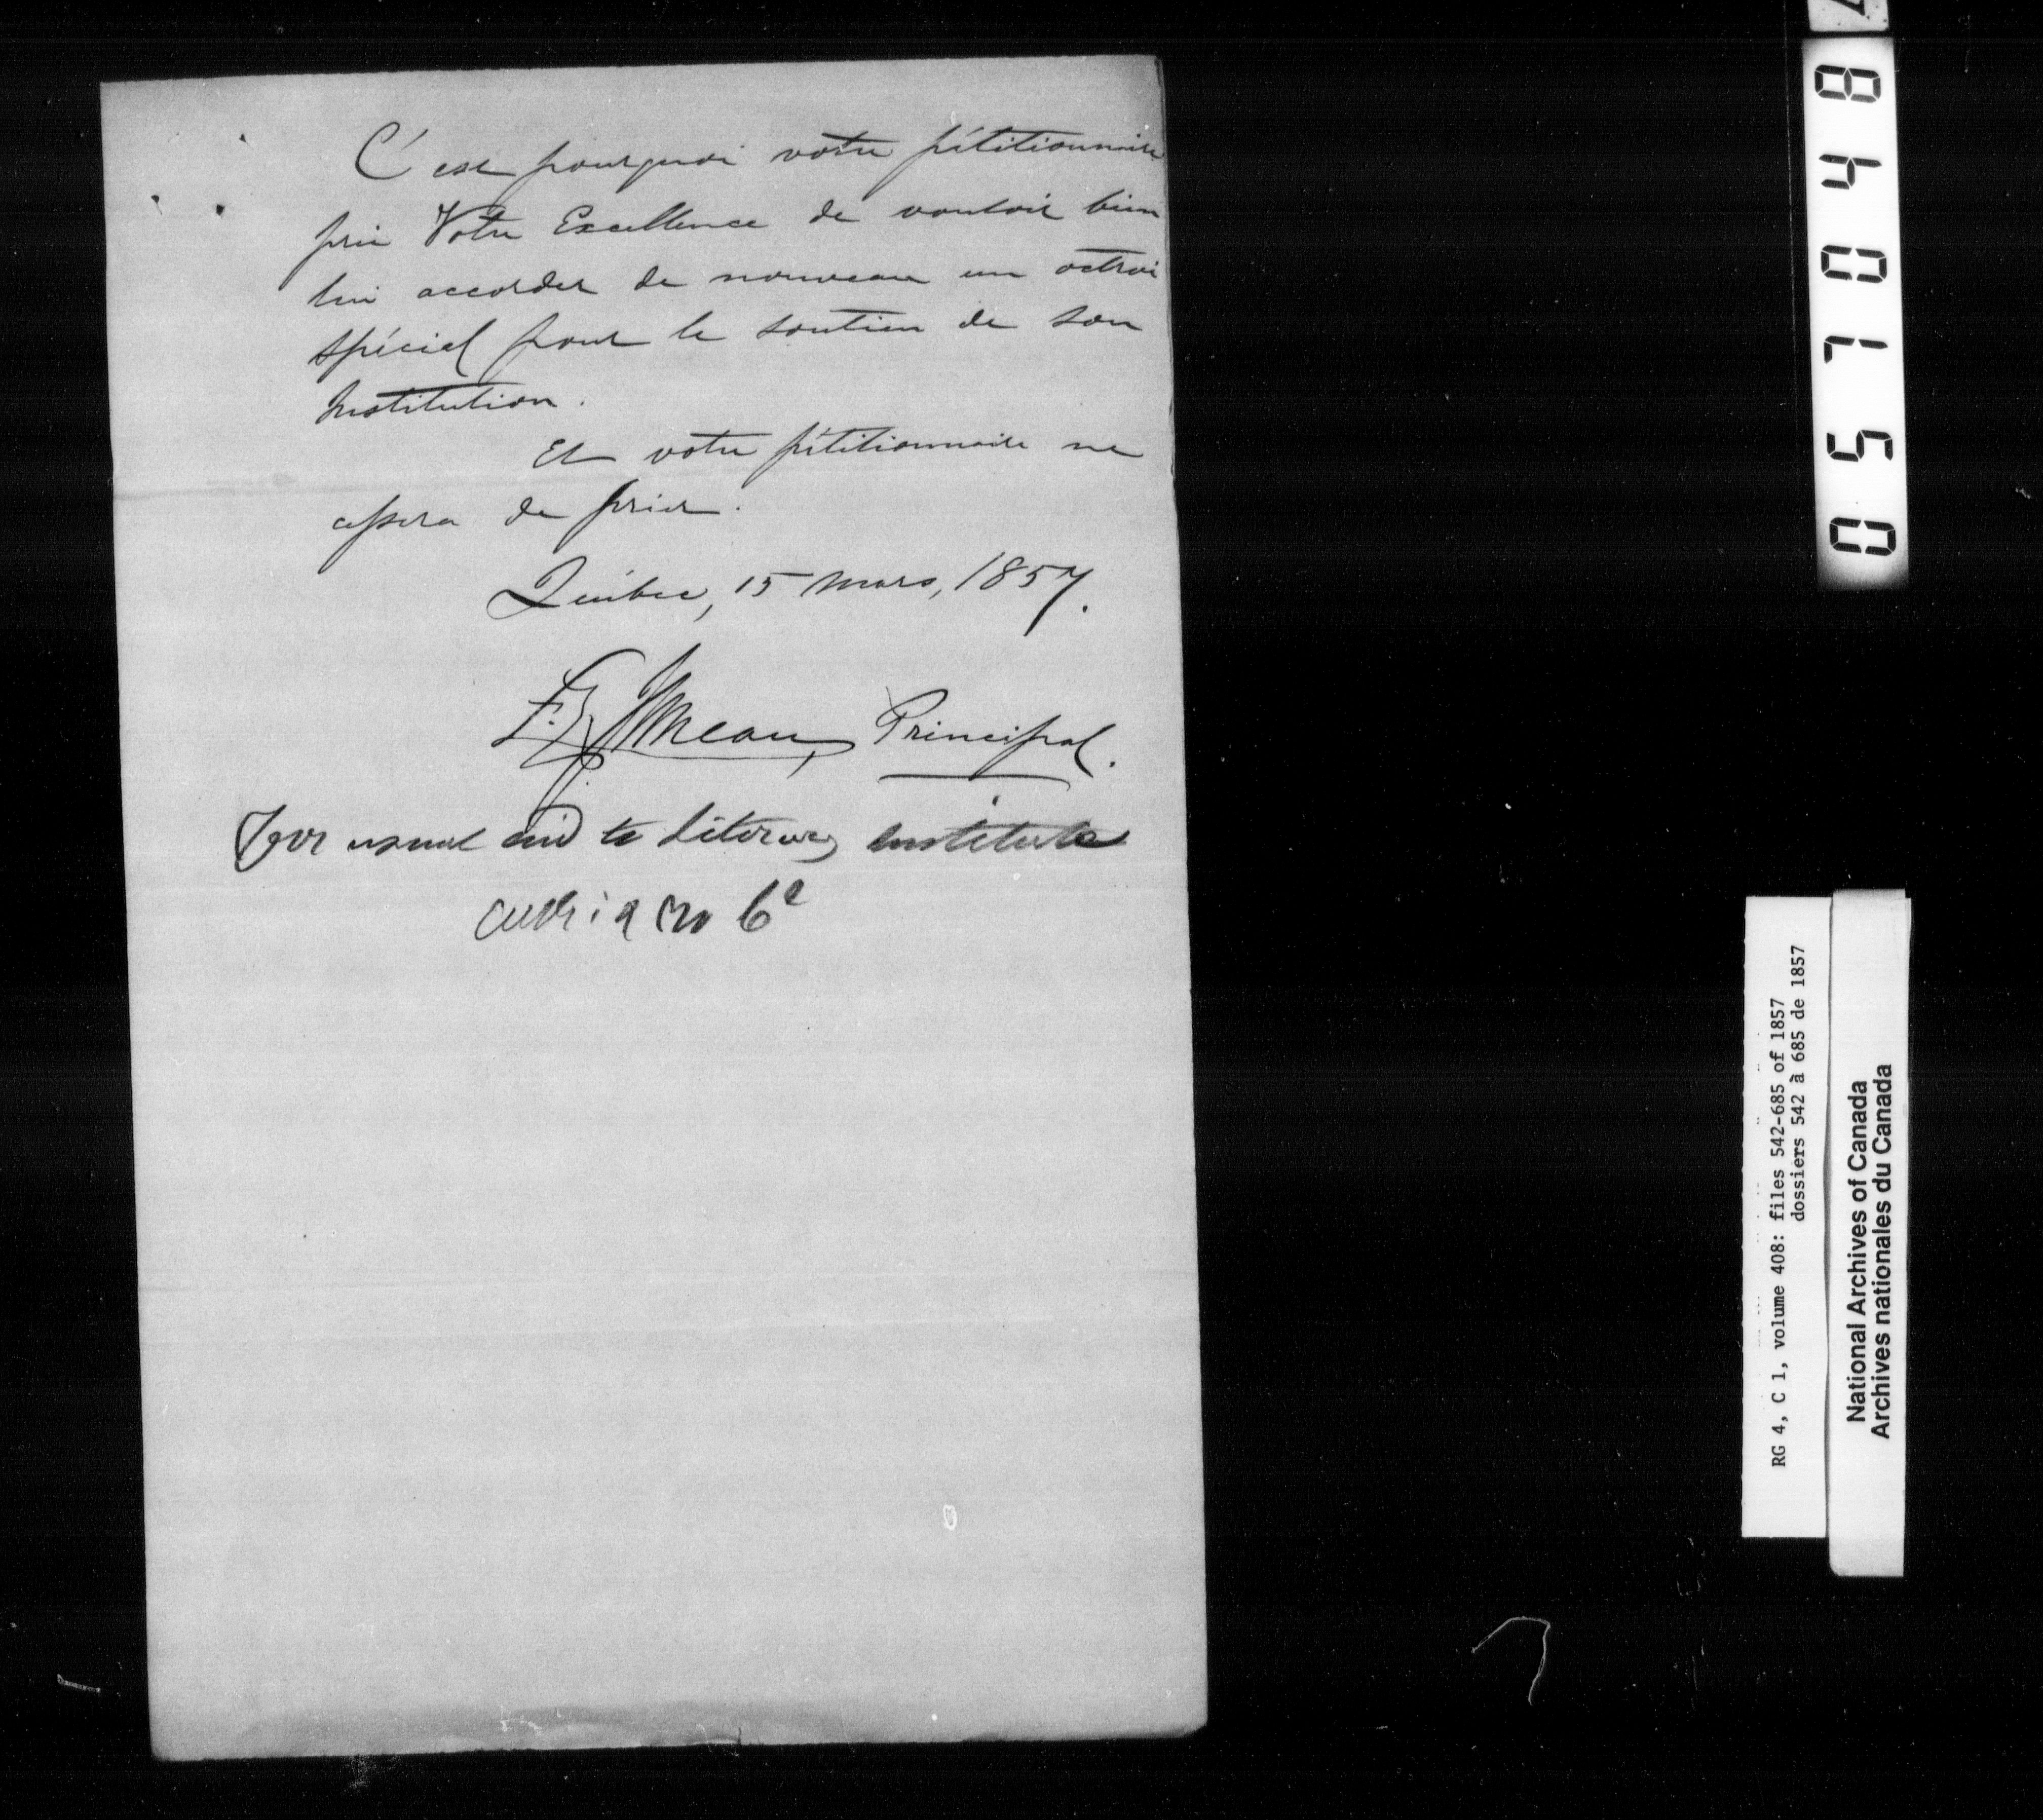 C'est pourquoi votre pétitionnaire
prie Votre Excellence de vouloir bien
lui accorder de nouveau un octroi
spécial pour le soutien de son
Institution.
Et votre pétitionnaire ne
cessera de prier.
Québec, 15 Mars, 1857.
Juneau, Principal.
For usual aid to Literary Institute
057048
RG 4, C 1, volume 408: files 542-685 of 1857
dossiers 542 à 685 de 1857
National Archives of Canada
Archives nationales du Canada